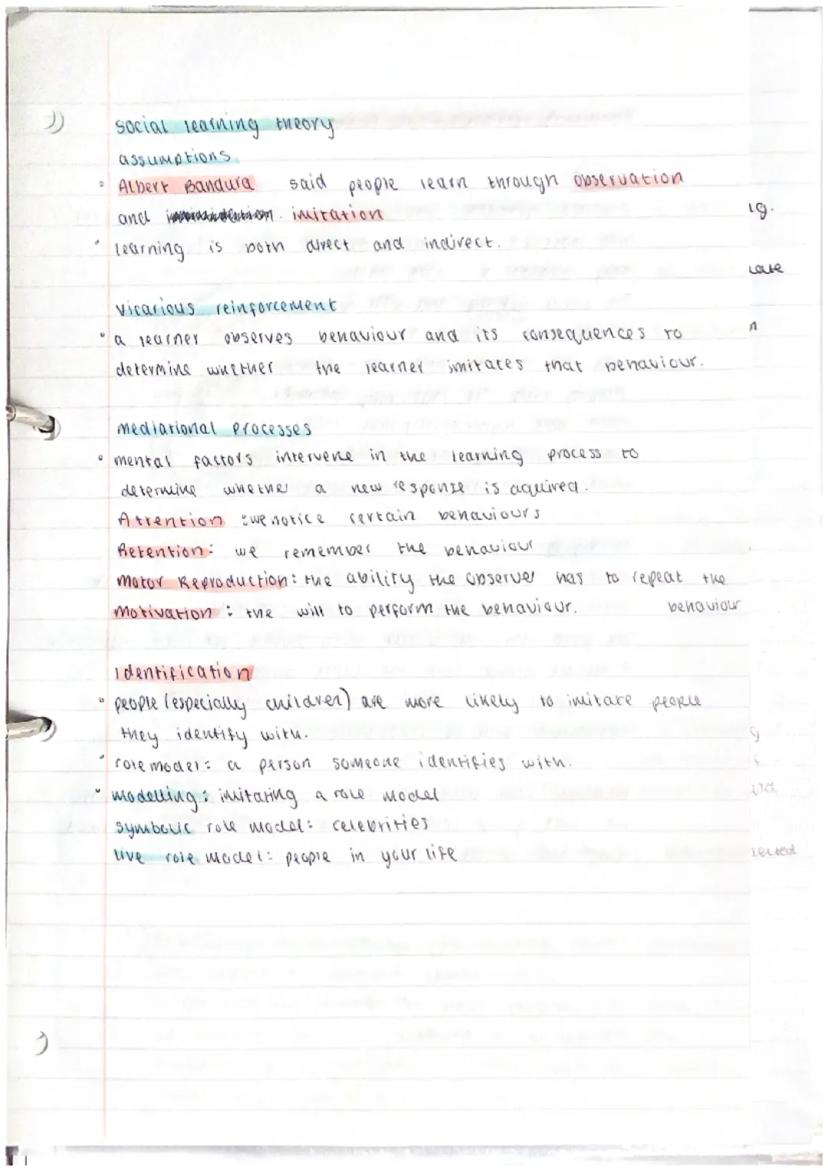 social learning theory
assumptions
Albert Bandura said people learn through observation
and imitation
learning is both direct and indirect.
vicarious reinforcement
a learner observes behaviour and its consequences to
determine whether the learner imitates that behaviour.
mediational processes
mental factors intervene in the learning process to
determine whether a new response is aquired.
Attention : we notice certain behaviours
Retention: we remember the behaviour
Motor Reproduction: the ability the observer has to repeat the
behaviour
Motivation : the will to perform the behaviour.
Identification
people (especially children) are more likely to imitate people
they identify with.
role model: a person someone identifies with.
modelling: imitating a role model
symbolic role model: celebrities
live role model: people in your life